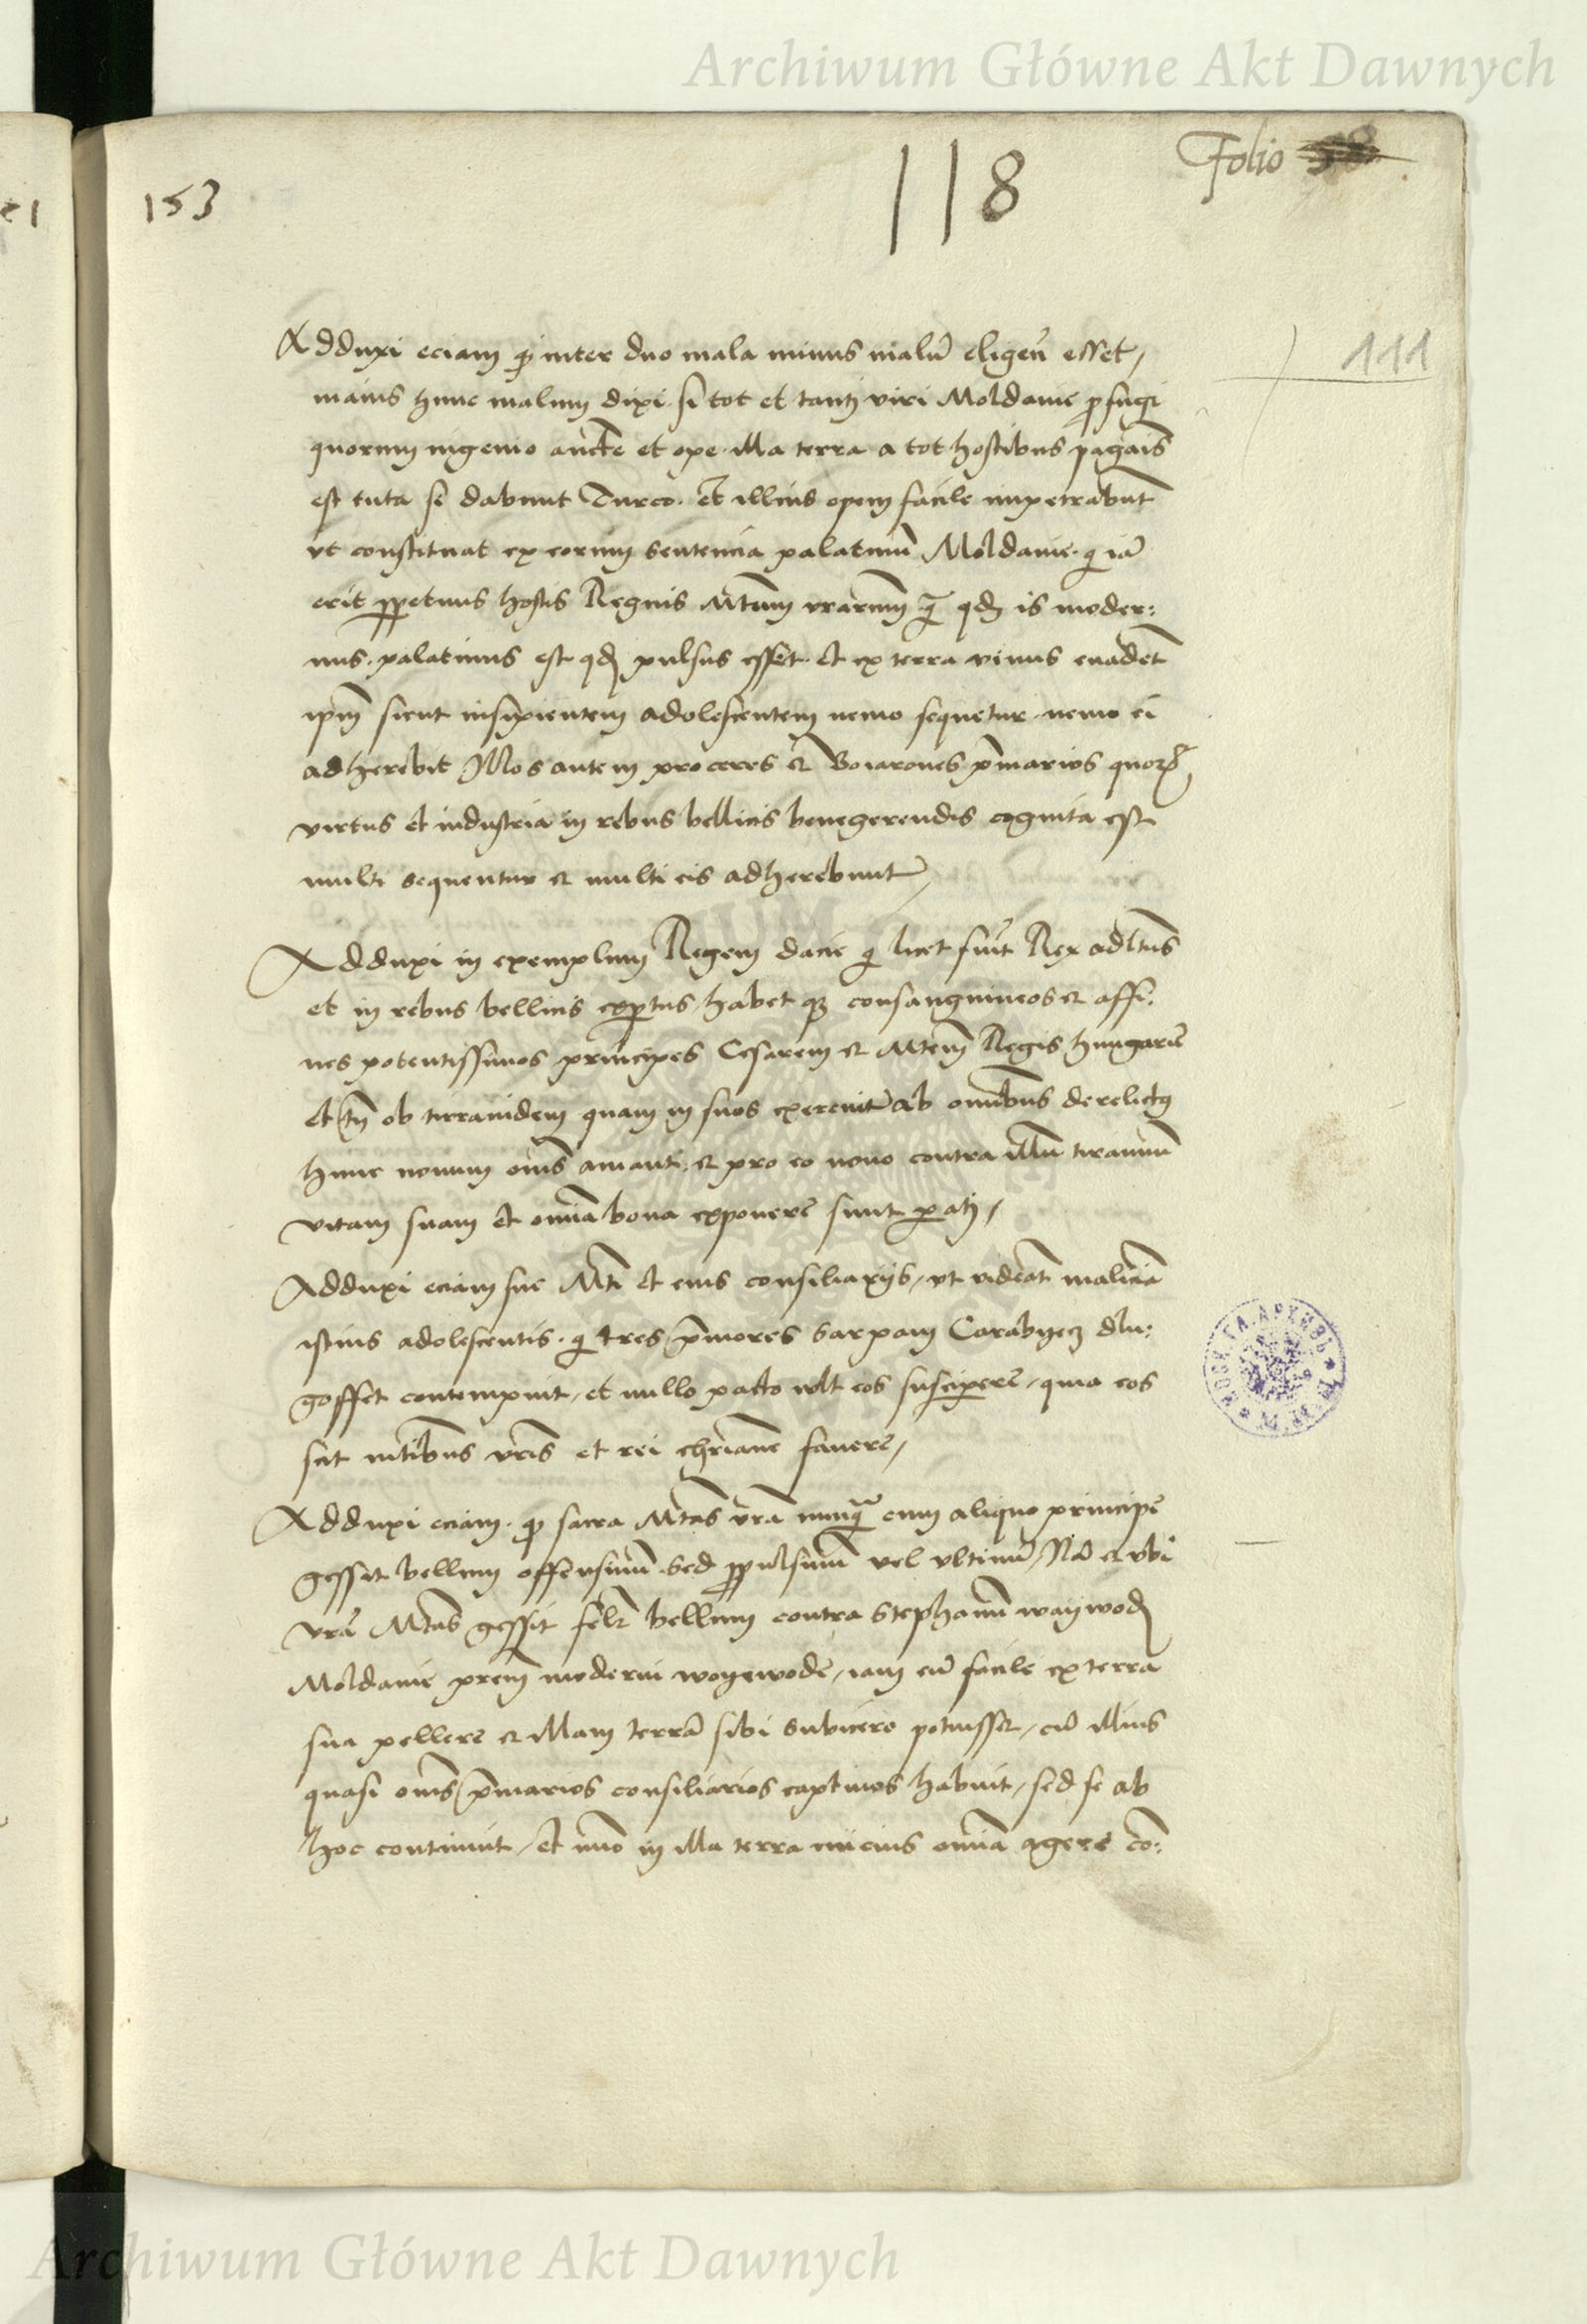 Archiwum Główne Akt Dawnych
Folio
153
118
111
Adduxi eciam qp inter duo mala minus malū eligen̄ esset,
maius hunc malum dixi si tot et tanti viri Moldauie profugi
quorum ingenio aucte et ope illa terra a tot hostibus paganis
est tuta se dabunt Turco. Et illius opem facile impetrabunt
vt constituat ex eorum sentencia palatinū Moldauie. q iā
erit ppetuus hostis Regnis Mtum vrarum qd is moder:
nus palatinus est qd pulsus esset. et ex terra viuus euadet
ipm̄ sicut insipientem adolescentem nemo sequetur nemo ei
adherebit Illos autem proceres et Boiarones pmarios quor
virtus et industria in rebus bellicis benegerendis cognita est
multi sequentur et multi eis adherebunt,
Adduxi in exemplum Regem dacie q licet fuit Rex adltus
et in rebus bellicis exptus habet qz consanguineos et affi:
nes potentissimos principes Cesarem et Mtem̄ Regis hungarie
et tn̄ ob tirranidem quam in suos exercuit ab omībus derelictus
hunc nouum oms̄ amant. et pro eo nouo contra illū tirannū
vitam suam et omīa bona exponere sunt parati,
Adduxi eciam sue Mti et eius consiliarijs, vt videāt maliciā
istius adolescentis. q tres pmores Sarpam Carabyecz dlu:
gosset contempsit, et nullo pacto vlt eos suscipere, quia eos
scit mtibus vris et rei chriane fauere,
Adduxi eciam. qp sacra Mtas vra nunqā cum aliquo principe
gessit bellum offensiuū. sed ppulsiuū vel vltimū, Nā et vbi
vra Mtas gessit felr bellum contra Stephanū waywod
Moldauie prem̄ moderni woyewode, iam eū facile ex terra
sua pellere et illam terrā sibi subicere potuisset, cū illius
quasi oms̄ pmarios consiliarios captiuos habuit, sed se ab
hoc continuit, et in illa terra micius omīa agere co:
Archiwum Główne Akt Dawnych